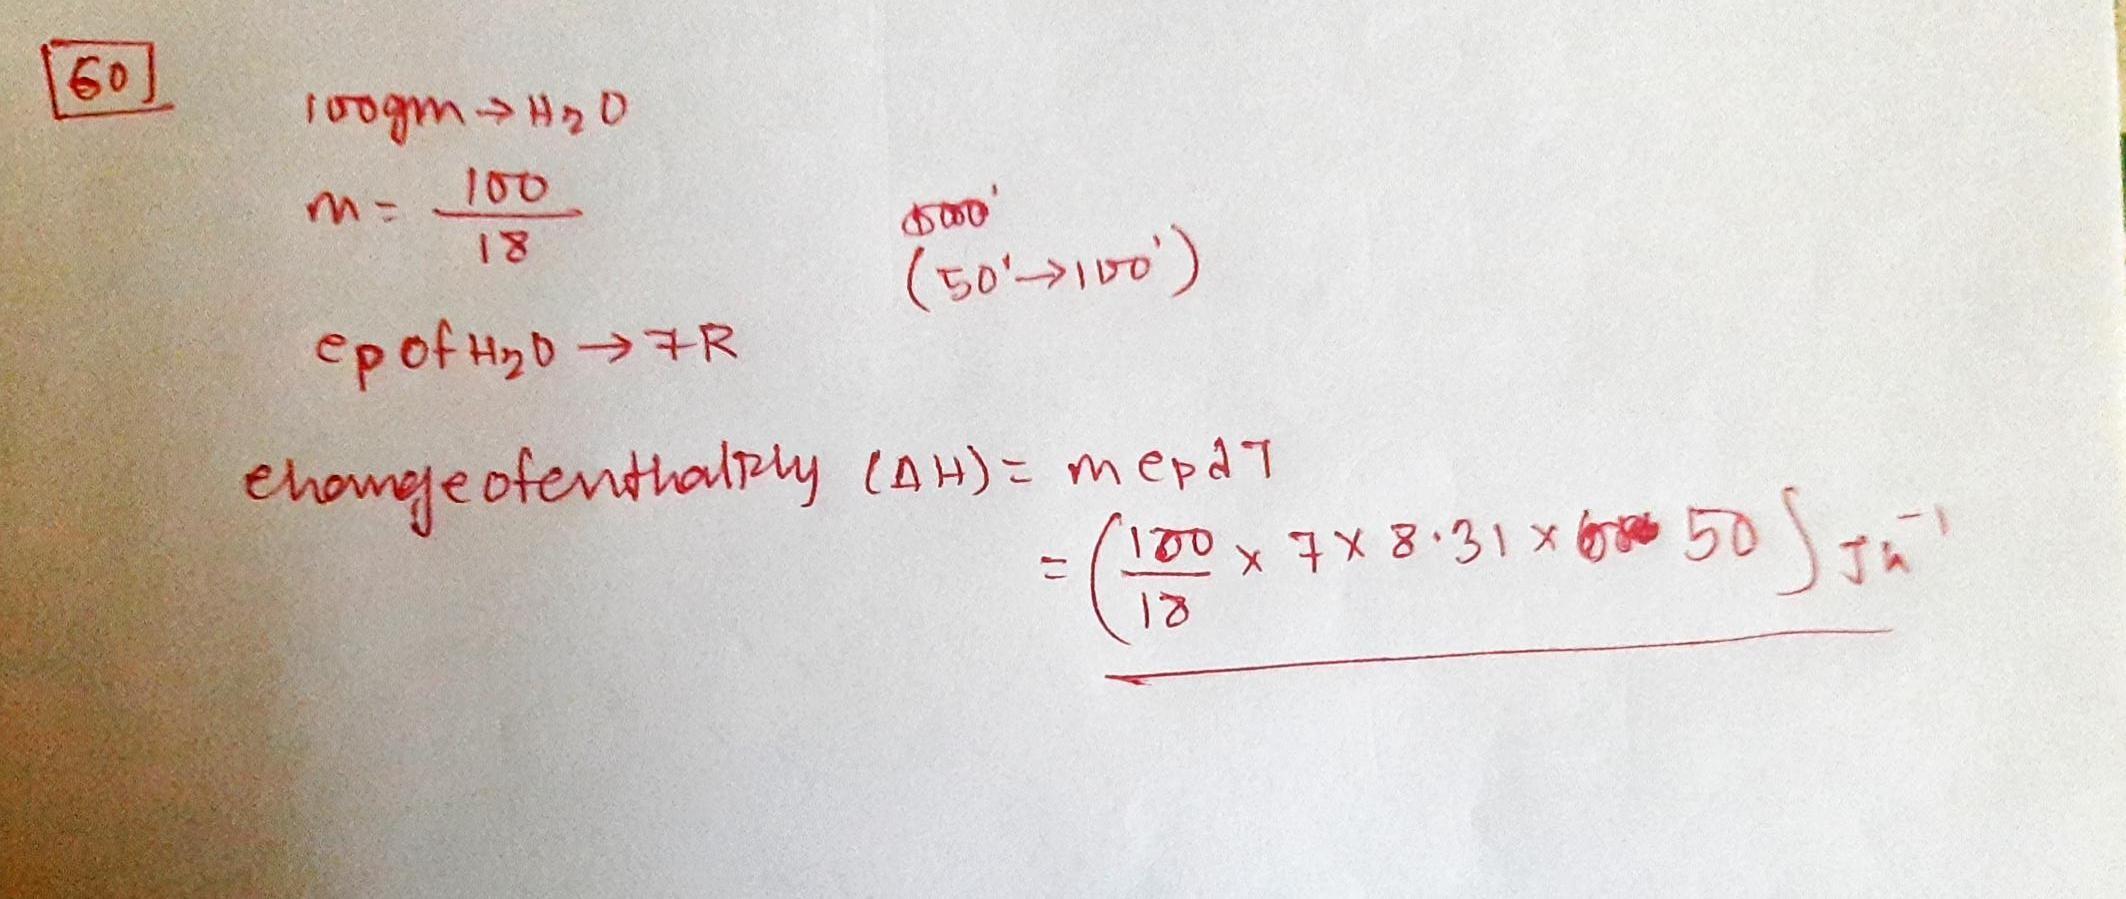 60
100gm → H2O
m = 100/18
(50' → 100')
cp of H2O → 7R
change of enthalply (ΔH) = m cp dT
= (100/18 × 7 × 8.31 × 50) Jk⁻¹